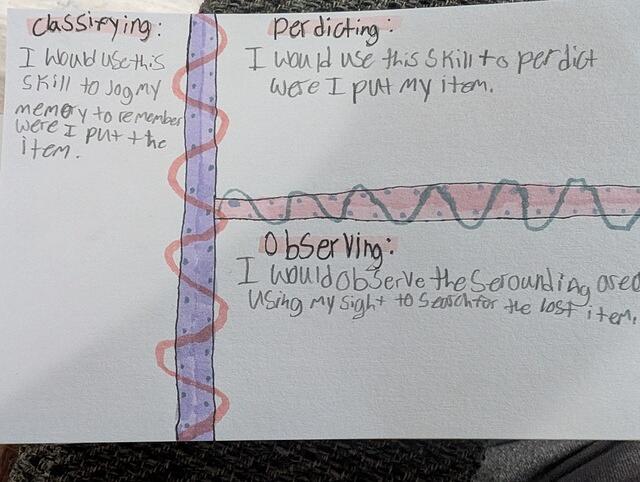 classifying:
I would use this
skill to Jog my
memory to remember
were I put the
item.
Perdicting:
I would use this skill to perdict
were I put my item.
Observing:
I would observe the serounding area
using my sight to search for the lost item.